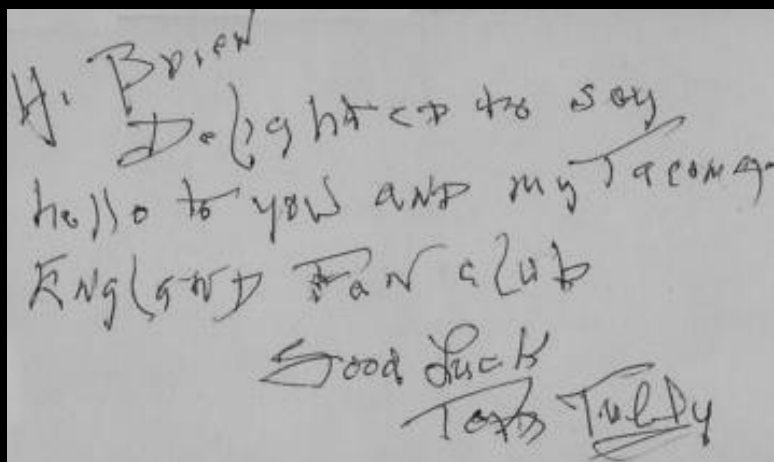 Hi Brien
Delighted to say
hello to you and my Tacoma
England Fan Club
Good Luck
Tully